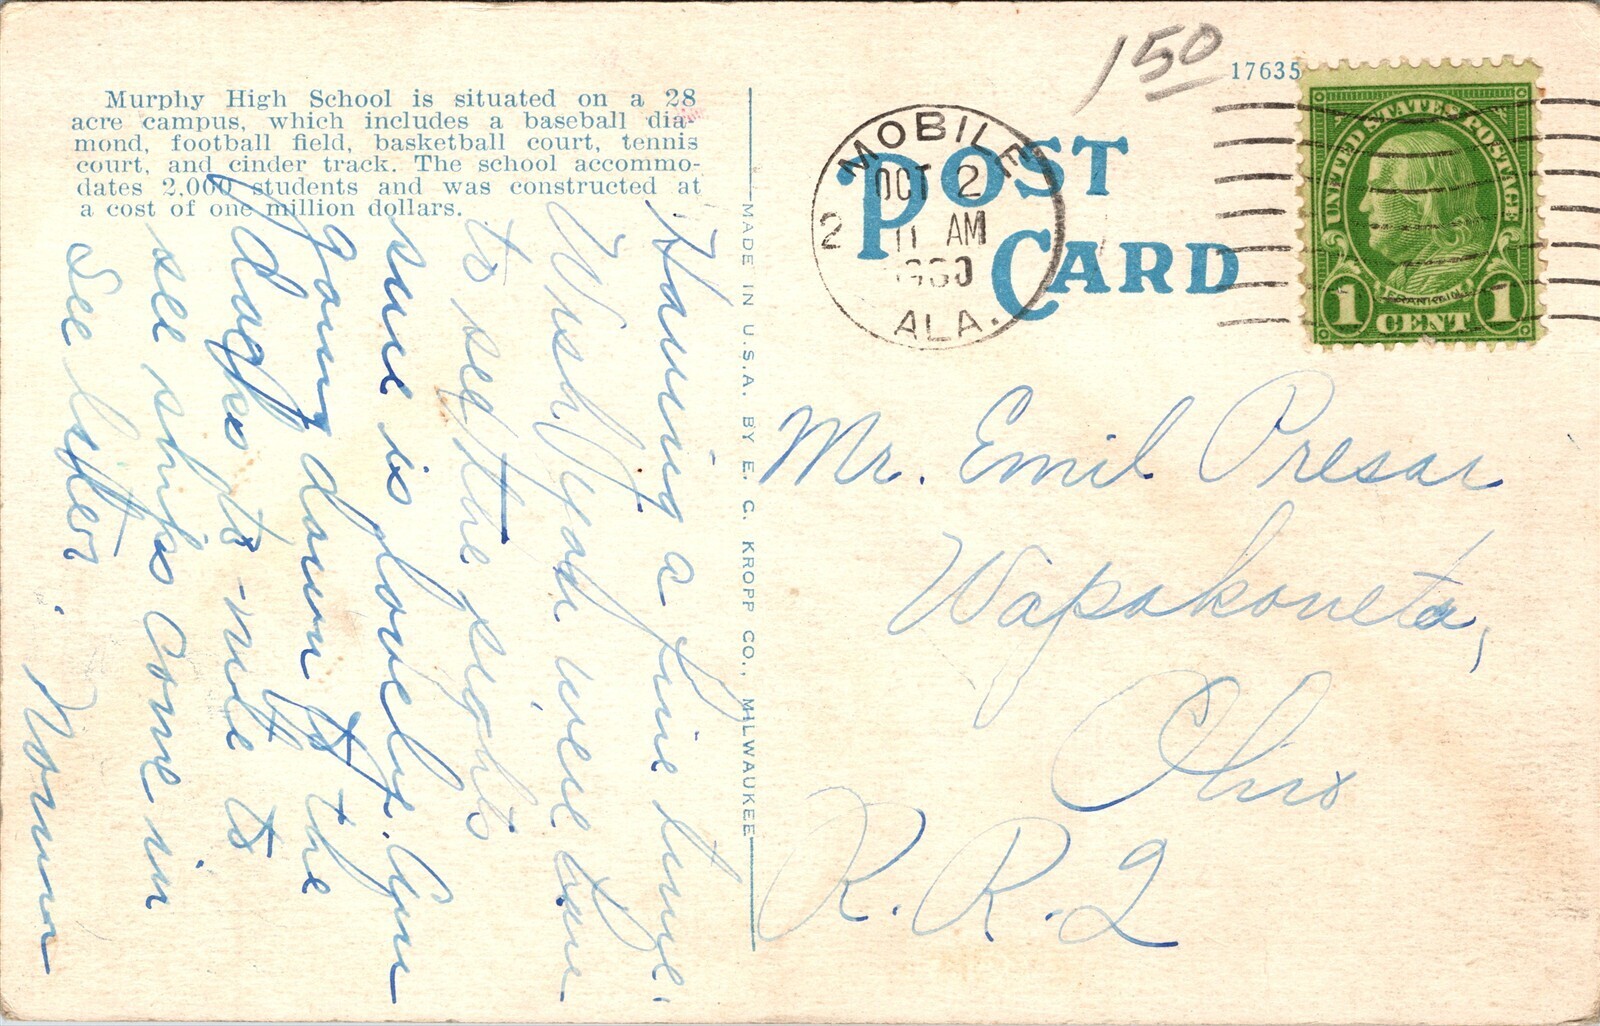 Murphy High School is situated on a 28
acre campus, which includes a baseball dia-
mond, football field, basketball court, tennis
court, and cinder track. The school accommo-
dates 2,000 students and was constructed at
a cost of one million dollars.
Having a fine time.
Wish you were here
to see the sights
sure is lovely.
going down to the
docks to-nite to
see ships come in
See letter.
Norman
MADE IN U.S.A. BY E. C. KROPP CO., MILWAUKEE
150
17635
POST
CARD
MOBILE
OCT 2
11 AM
1930
2
ALA.
UNITED STATES POSTAGE
FRANKLIN
1 CENT 1
Mr. Emil Presar
Wapakoneta,
Ohio
R. R. 2